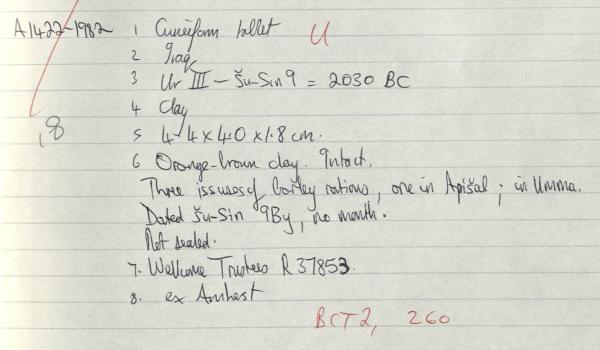 A1422-1982 1 Cuneiform tablet U
2 Iraq
3 Ur III – Šu-Sin 9 = 2030 BC
4 Clay
,8
5 4.4 x 4.0 x 1.8 cm.
6 Orange-brown clay. Intact.
Three issues of barley rations, one in Apišal ; in Umma.
Dated Šu-Sin 9By, no month.
Not sealed.
7. Wellcome Trustees R 37853.
8. ex Amherst
BCT2, 260